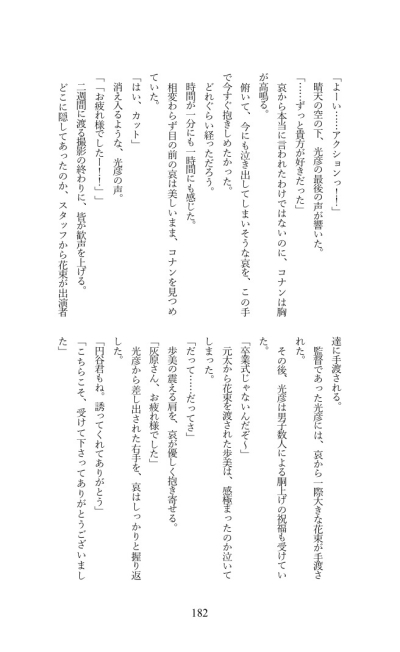 「よーい……アクションっ！！」
晴天の空の下、光彦の最後の声が響いた。
「……ずっと貴方が好きだった」
哀から本当に言われたわけではないのに、コナンは胸
が高鳴る。
俯いて、今にも泣き出してしまいそうな哀を、この手
で今すぐ抱きしめたかった。
どれぐらい経っただろう。
時間が一分にも一時間にも感じた。
相変わらず目の前の哀は美しいまま、コナンを見つめ
ていた。
「はい、カット」
消え入るような、光彦の声。
「「お疲れ様でしたー！！」」
二週間に渡る撮影の終わりに、皆が歓声を上げる。
どこに隠してあったのか、スタッフから花束が出演者
達に手渡される。
監督であった光彦には、哀から一際大きな花束が手渡さ
れた。
その後、光彦は男子数人による胴上げの祝福も受けてい
た。
「卒業式じゃないんだぞ〜」
元太から花束を渡された歩美は、感極まったのか泣いて
しまった。
「だって……だってさ」
歩美の震える肩を、哀が優しく抱き寄せる。
「灰原さん、お疲れ様でした」
光彦から差し出された右手を、哀はしっかりと握り返
した。
「円谷君もね。誘ってくれてありがとう」
「こちらこそ、受けて下さってありがとうございまし
た」
182